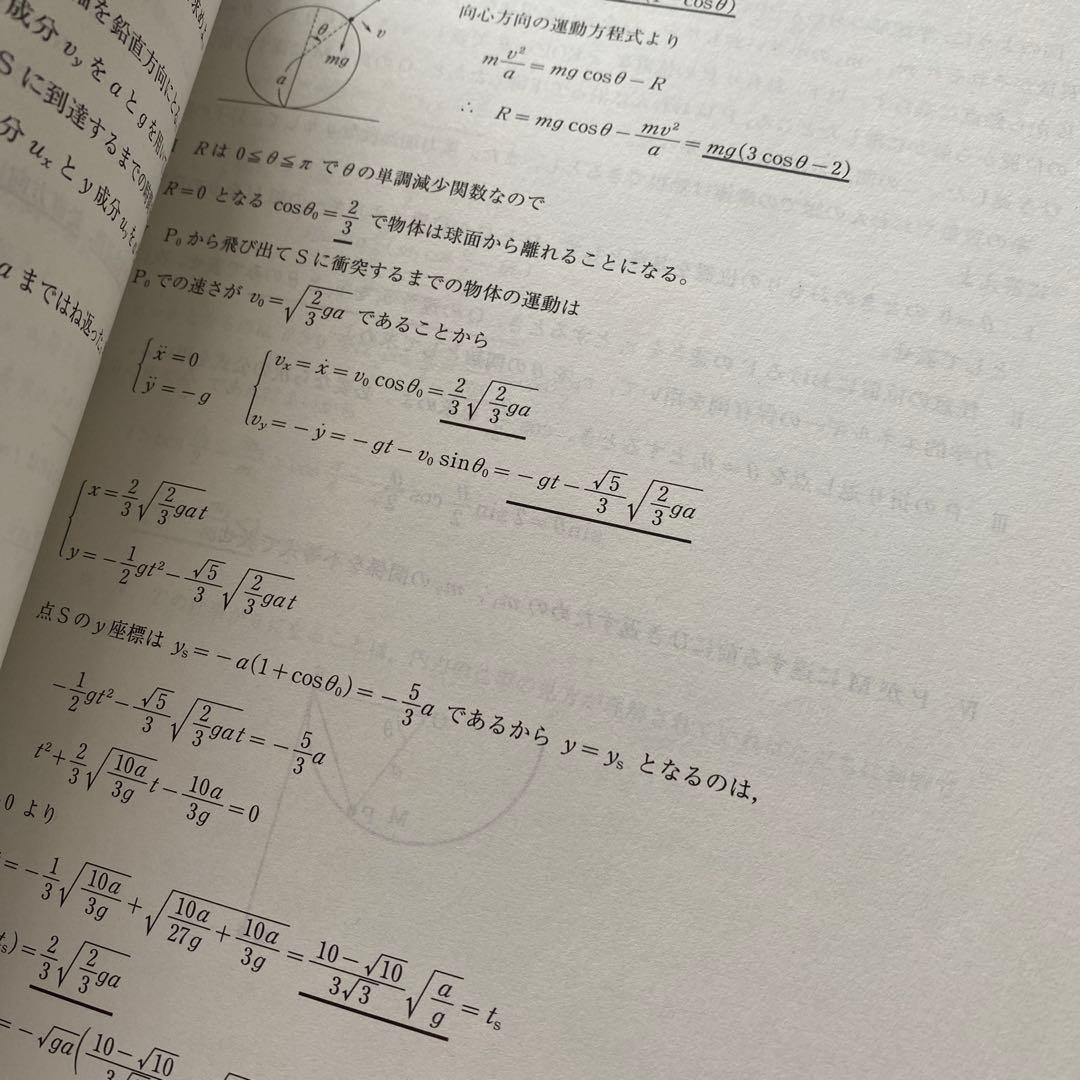 を鉛直方向にとる
成分 v_y を a と g を用い
S に到達するまでの時間
分 u_x と y 成分 u_y を
a まではね返った
θ
v
mg
a
向心方向の運動方程式より
m v²/a = mg cosθ − R
∴ R = mg cosθ − mv²/a = mg(3 cosθ − 2)
R は 0≦θ≦π で θ の単調減少関数なので
R=0 となる cosθ₀ = 2/3 で物体は球面から離れることになる。
P₀ から飛び出て S に衝突するまでの物体の運動は
P₀ での速さが v₀ = √(2/3 ga) であることから
{ẍ = 0
ÿ = −g
{v_x = ẋ = v₀ cosθ₀ = 2/3 √(2/3 ga)
v_y = −ẏ = −gt − v₀ sinθ₀ = −gt − √5/3 √(2/3 ga)
{x = 2/3 √(2/3 gat)
y = −1/2 gt² − √5/3 √(2/3 gat)
点 S の y 座標は y_s = −a(1+cosθ₀) = −5/3 a であるから y = y_s となるのは,
−1/2 gt² − √5/3 √(2/3 gat) = −5/3 a
t² + 2/3 √(10a/3g) t − 10a/3g = 0
0 より
= −1/3 √(10a/3g) + √(10a/27g + 10a/3g) = (10−√10)/(3√3) √(a/g) = t_s
t_s) = 2/3 √(2/3 ga)
= −√ga((10−√10)